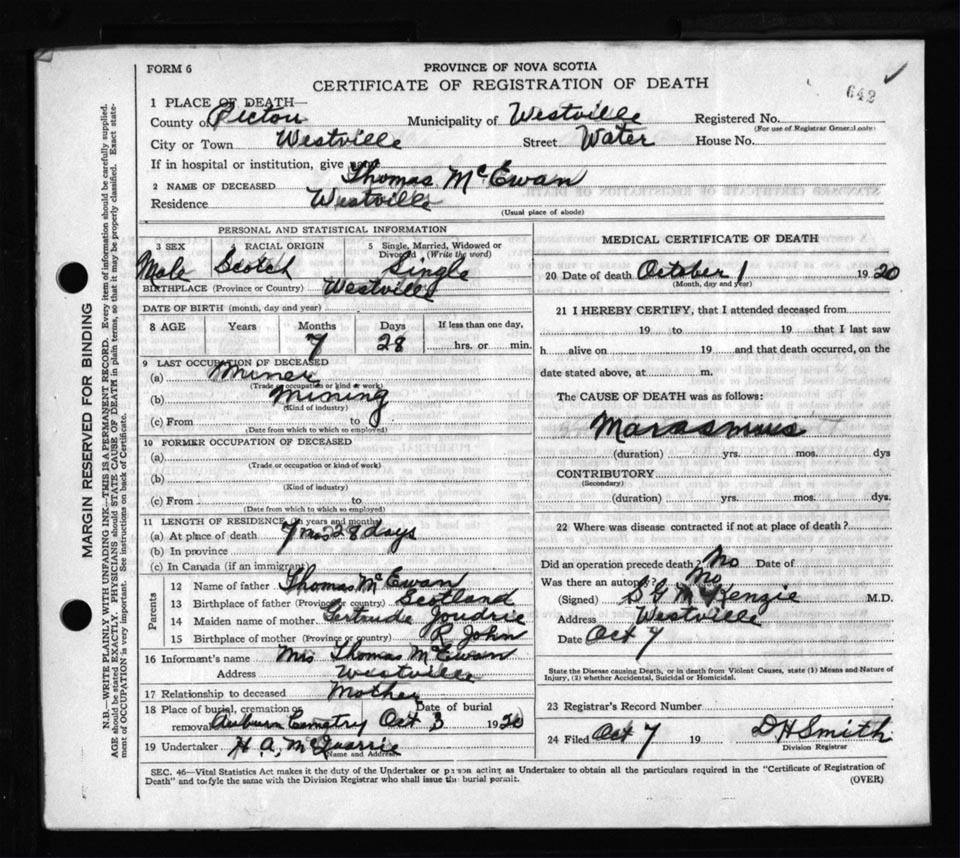 FORM 6
PROVINCE OF NOVA SCOTIA
CERTIFICATE OF REGISTRATION OF DEATH
642
1 PLACE OF DEATH—
County of Pictou Municipality of Westville Registered No.
(For use of Registrar General only)
City or Town Westville Street Water House No.
If in hospital or institution, give name
2 NAME OF DECEASED Thomas McEwan
Residence Westville
(Usual place of abode)
PERSONAL AND STATISTICAL INFORMATION
3 SEX RACIAL ORIGIN 5 Single, Married, Widowed or Divorced (Write the word)
Male Scotch Single
BIRTHPLACE (Province or County) Westville
DATE OF BIRTH (month, day and year)
8 AGE Years Months Days If less than one day,
7 28 hrs. or min.
9 LAST OCCUPATION OF DECEASED
(a) Miner
(Trade or occupation or kind of work)
(b) Mining
(Kind of industry)
(c) From to
(Date from which to which so employed)
10 FORMER OCCUPATION OF DECEASED
(a)
(Trade or occupation or kind of work)
(b)
(Kind of industry)
(c) From to
(Date from which to which so employed)
11 LENGTH OF RESIDENCE (In years and months)
(a) At place of death 7 mos 28 days
(b) In province
(c) In Canada (if an immigrant)
Parents
12 Name of father Thomas McEwan
13 Birthplace of father (Province or county) Scotland
14 Maiden name of mother Gertrude Joudrie
15 Birthplace of mother (Province or county) R John
16 Informant's name Mrs Thomas McEwan
Address Westville
17 Relationship to deceased Mother
18 Place of burial, cremation or removal Auburn Cemetry Date of burial Oct 3 1920
19 Undertaker H A, McQuarrie
(Name and Address)
MEDICAL CERTIFICATE OF DEATH
20 Date of death October 1 1920
(Month, day and year)
21 I HEREBY CERTIFY, that I attended deceased from
19 to 19 that I last saw
h alive on 19 and that death occurred, on the
date stated above, at m.
The CAUSE OF DEATH was as follows:
Marasmus
(duration) yrs. mos. dys
CONTRIBUTORY
(Secondary)
(duration) yrs. mos. dys.
22 Where was disease contracted if not at place of death?
Did an operation precede death? No Date of
Was there an autopsy? No
(Signed) S G McKenzie M.D.
Address Westville
Date Oct 7
State the Disease causing Death, or in death from Violent Causes, state (1) Means and Nature of
Injury, (2) whether Accidental, Suicidal or Homicidal.
23 Registrar's Record Number
24 Filed Oct 7 19 D H Smith
Division Registrar
SEC. 46—Vital Statistics Act makes it the duty of the Undertaker or person acting as Undertaker to obtain all the particulars required in the "Certificate of Registration of
Death" and to file the same with the Division Registrar who shall issue the burial permit.
(OVER)
MARGIN RESERVED FOR BINDING
N.B.—WRITE PLAINLY WITH UNFADING INK—THIS IS A PERMANENT RECORD. Every item of information should be carefully supplied.
AGE should be stated EXACTLY. PHYSICIANS should STATE CAUSE OF DEATH in plain terms, so that it may be properly classified. Exact state-
ment of OCCUPATION is very important. See instructions on back of Certificate.